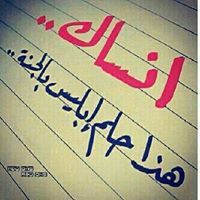 انساك..
هذا حلم إبليس بالجنة..